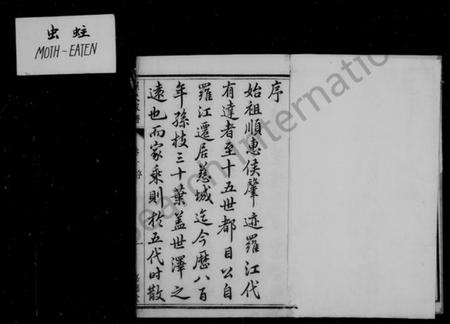 虫蛀
MOTH-EATEN
序
始祖順惠侯肇迹羅江代
有達者至十五世都目公自
羅江遷居慈城迄今歷八百
年孫枝三十葉蓋世澤之
遠也而家乘則於五代时散